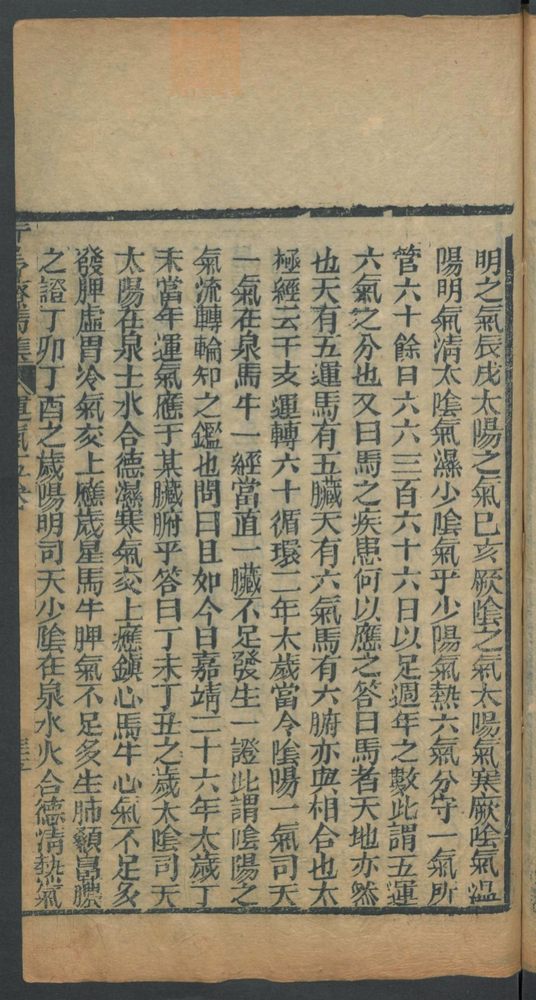 明之氣辰戌太陽之氣巳亥厥陰之氣太陽氣寒厥陰氣溫
陽明氣清太陰氣濕少陰氣乎少陽氣熱六氣分守一氣所
管六十餘日六六三百六十六日以足週年之數此謂五運
六氣之分也又曰馬之疾患何以應之答曰馬者天地亦然
也天有五運馬有五臟天有六氣馬有六腑亦與相合也太
極經云干支運轉六十循環二年太歲當令陰陽一氣司天
一氣在泉馬牛一經當直一臟不足發生一證此謂陰陽之
氣流轉輪知之鑑也問曰且如今日嘉靖二十六年太歲丁
未當年運氣應于某臟腑乎答曰丁未丁丑之歲太陰司天
太陽在泉土水合德濕寒氣交上應鎮心馬牛心氣不足多
發脾虛胃冷氣交上應歲星馬牛脾氣不足多生肺顙鼻膿
之證丁卯丁酉之歲陽明司天少陰在泉水火合德清熱氣